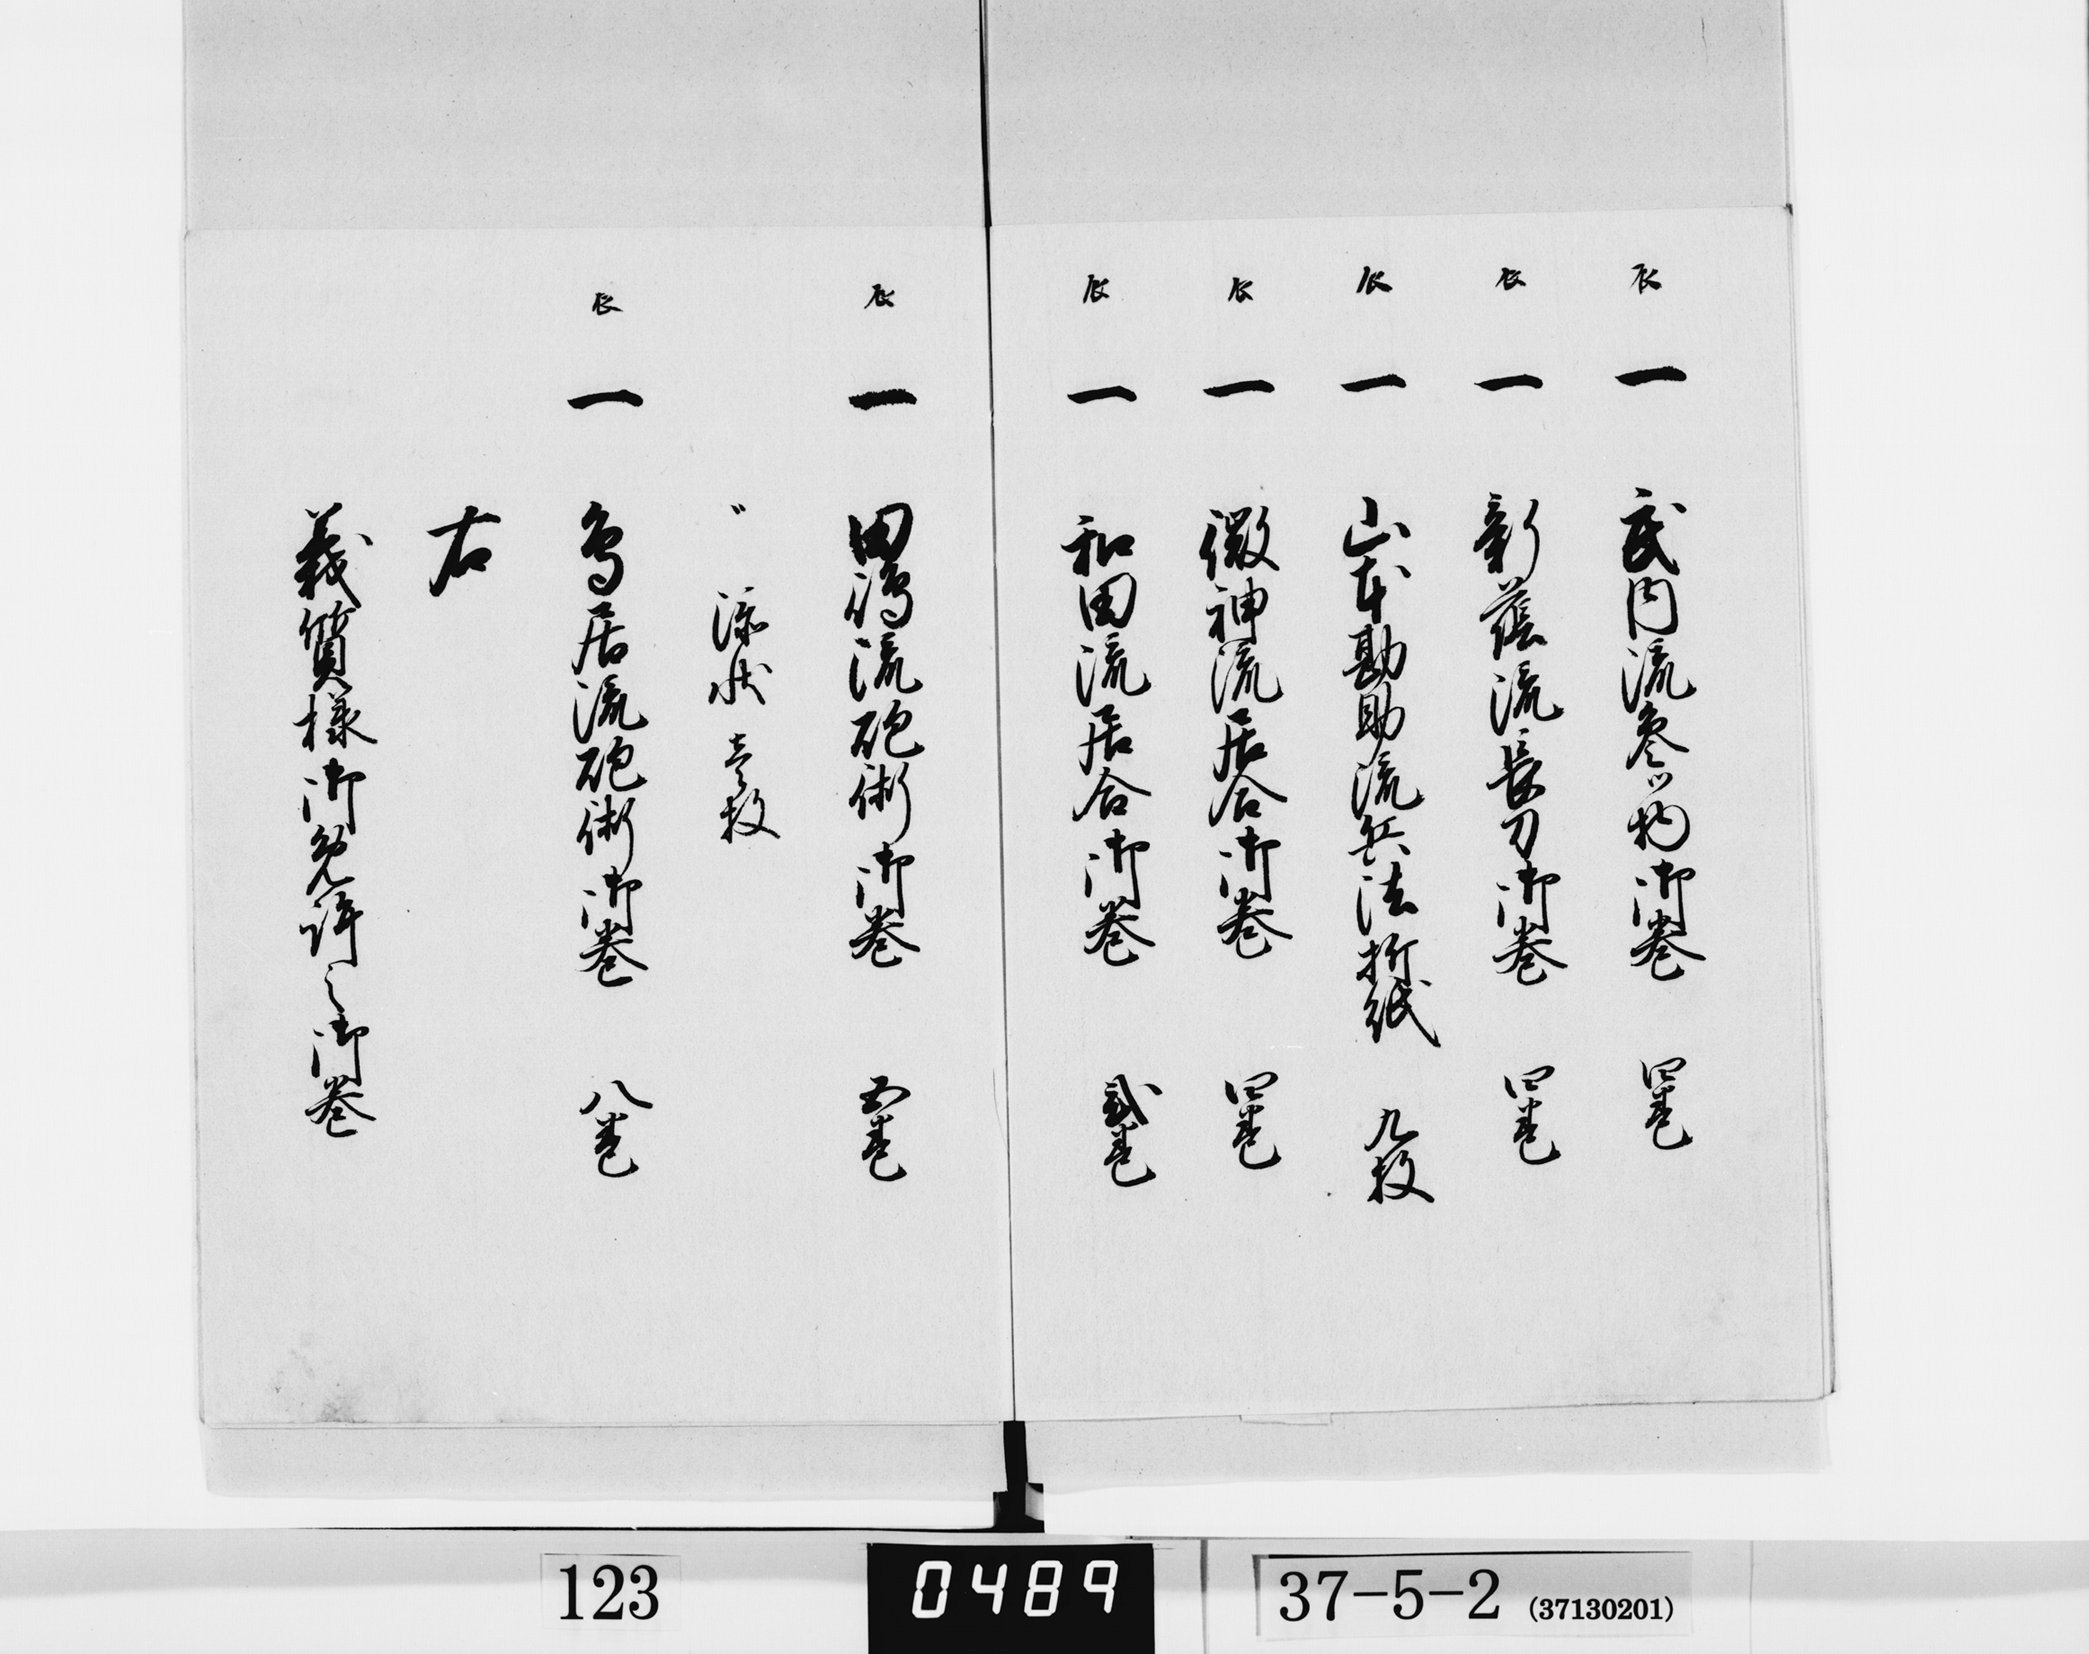 辰 一 武内流参ツ物御巻 四巻
辰 一 新蔭流長刀御巻 四巻
辰 一 山本勘助流兵法折紙 九枚
辰 一 微神流居合御巻 四巻
辰 一 和田流居合御巻 弐巻
辰 一 田嶋流砲術御巻 五巻
〃 添状 壱枚
辰 一 鳥居流砲術御巻 八巻
右
義質様御免許之御巻
123
0489
37-5-2 (37130201)